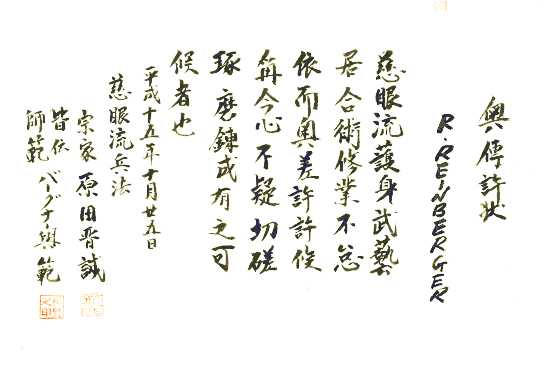 奥傳許状
R.REINBERGER
慈眼流護身武藝
居合術修業不怠
依而奥差許許候
爾今心不疑切磋
琢磨錬成有之可
候者也
平成十五年十月廿五日
慈眼流兵法
宗家 原田晋誠
皆伝師範 バーグナー與範